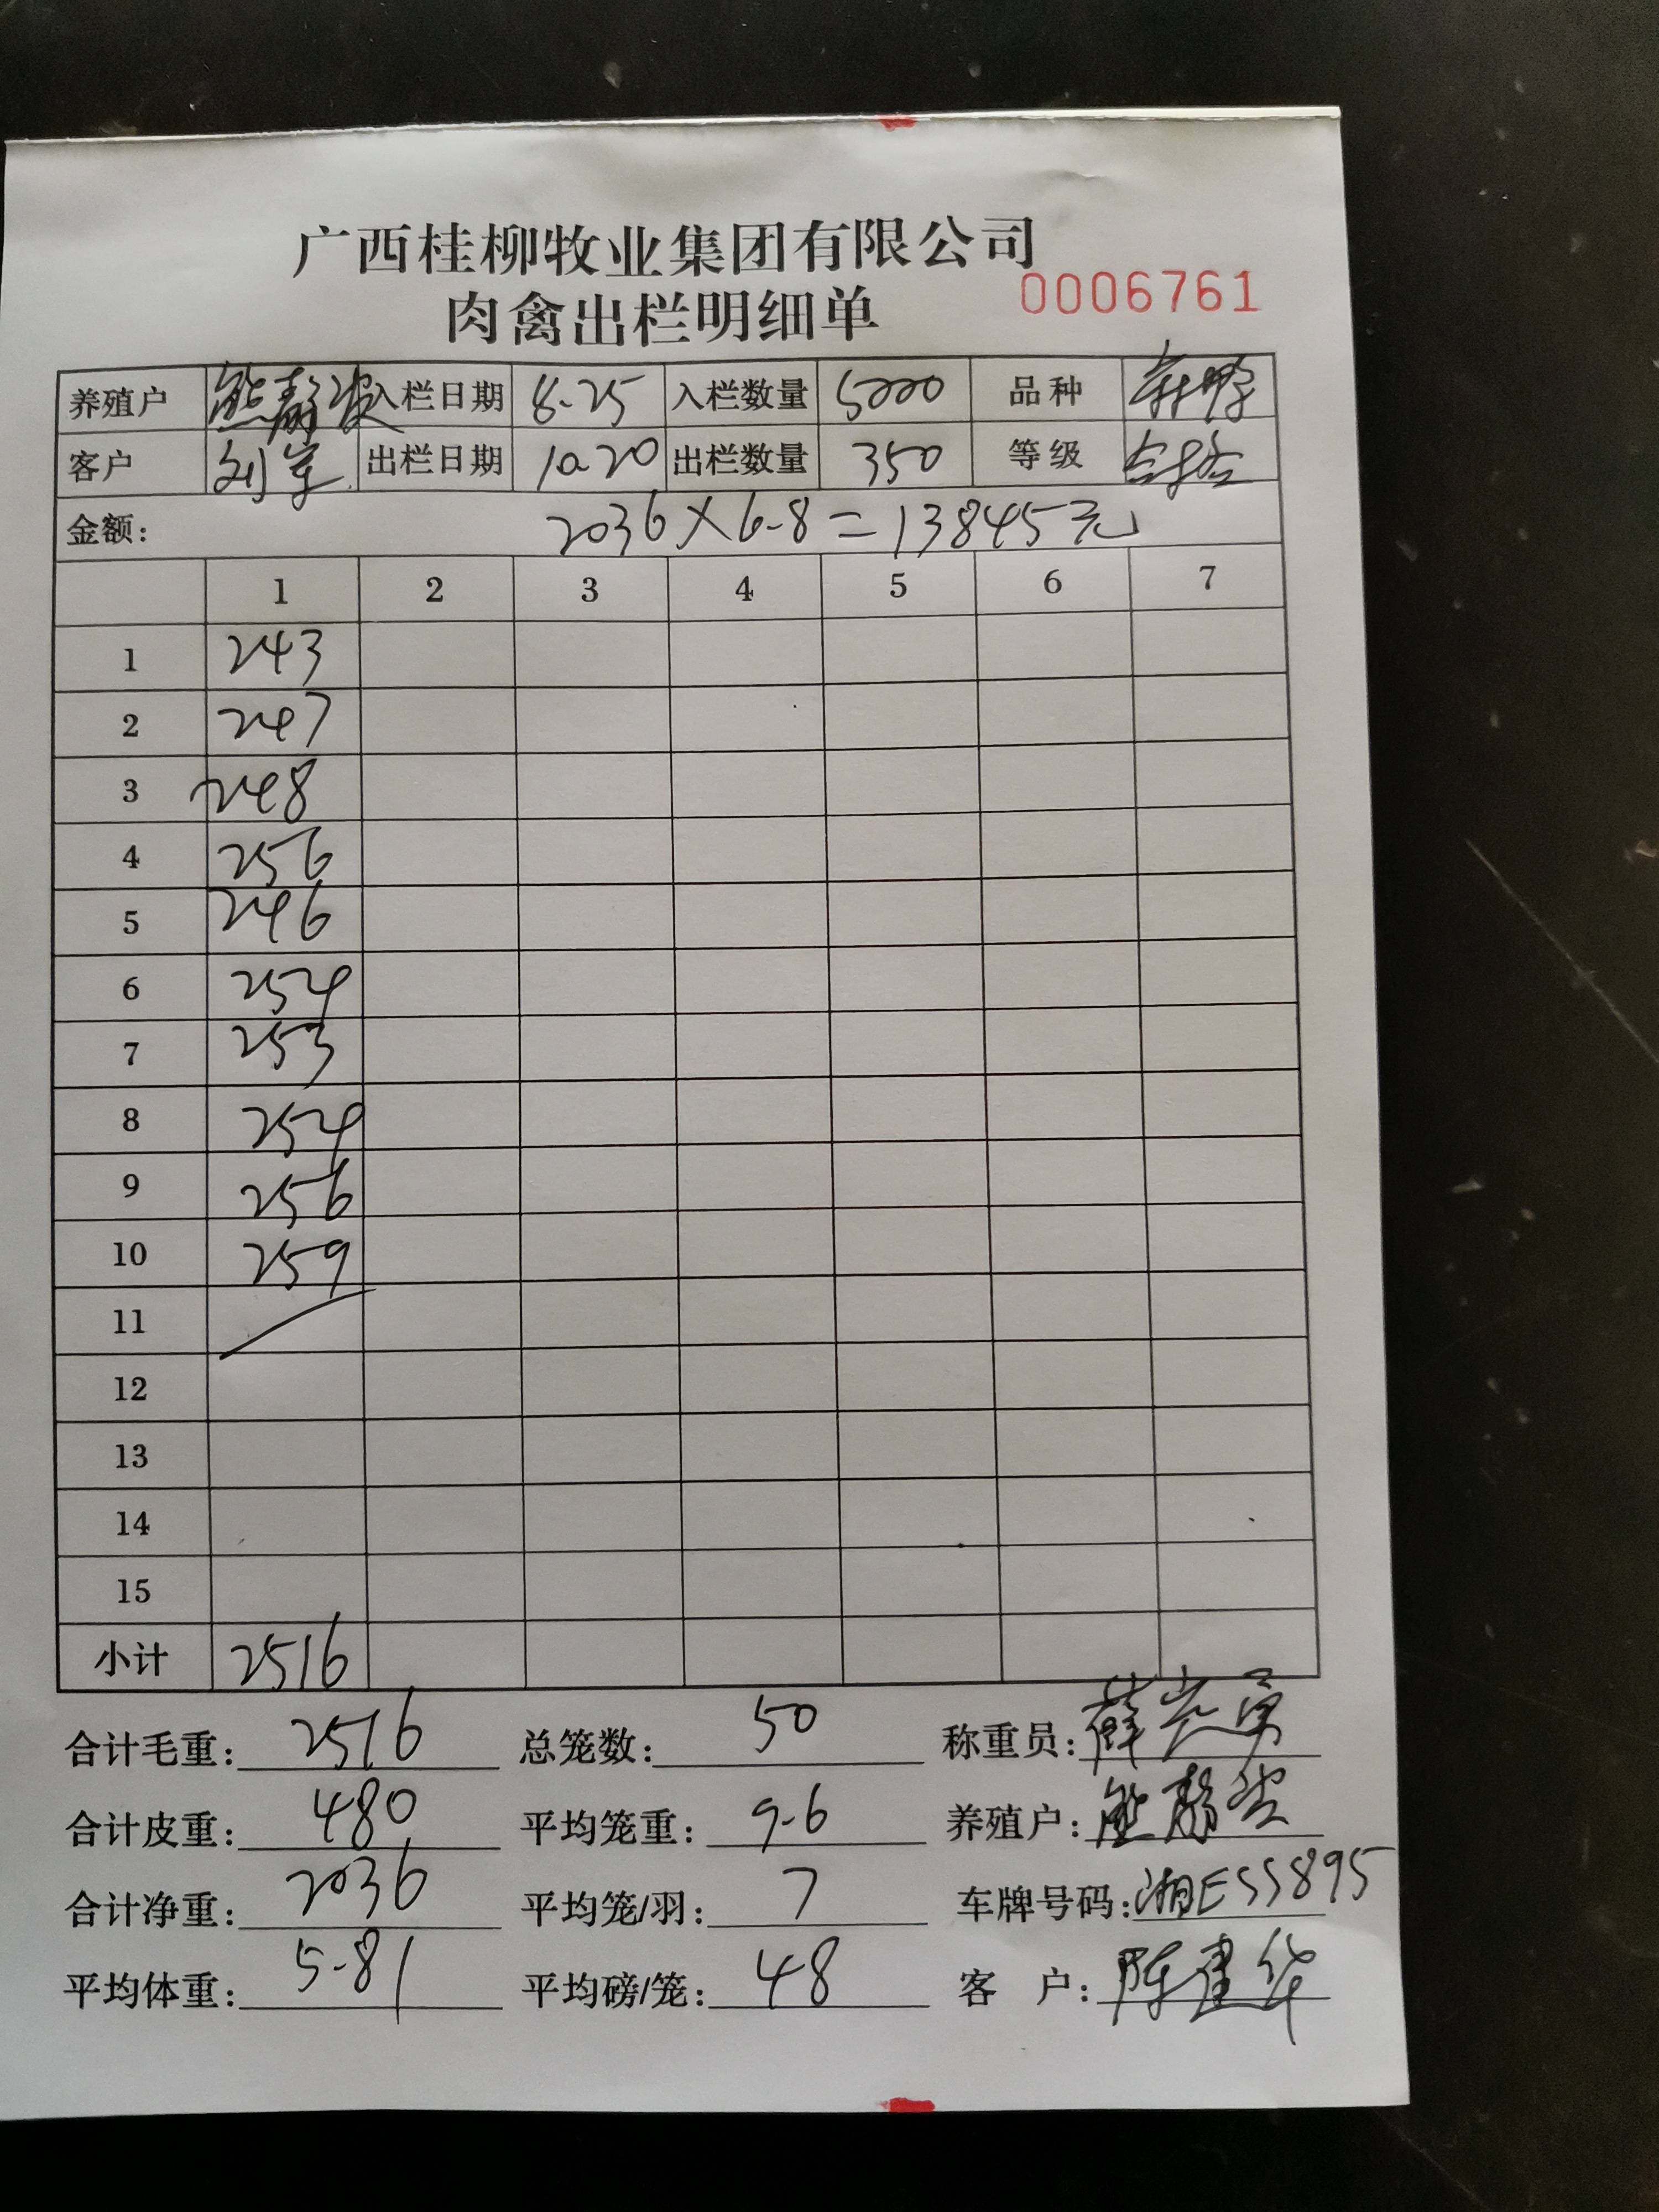 广西桂柳牧业集团有限公司
肉禽出栏明细单 0006761
养殖户 熊 入栏日期 8-25 入栏数量 5000 品种
客户 刘 出栏日期 10-20 出栏数量 350 等级
金额: 2036×6-8=13845元
1 2 3 4 5 6 7
1 243
2 247
3 248
4 256
5 246
6 254
7 253
8 254
9 256
10 259
11
12
13
14
15
小计 2516
合计毛重: 2516 总笼数: 50 称重员: 薛
合计皮重: 480 平均笼重: 9-6 养殖户: 熊
合计净重: 2036 平均笼/羽: 7 车牌号码: 湘ESS895
平均体重: 5-81 平均磅/笼: 48 客 户: 陈建华